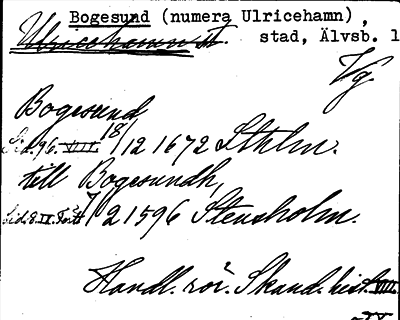 Bogesund (numera Ulricehamn),
Ulricehamn st. stad, Älvsb. l
Vg
Bogesund
Sid. 96. VIII 18/12 1672 Sthlm.
till Bogesundh,
Sid. 8. IX 7/2 1596 Stensholm.
Handl. rör. Skand. hist. VIII.
IX